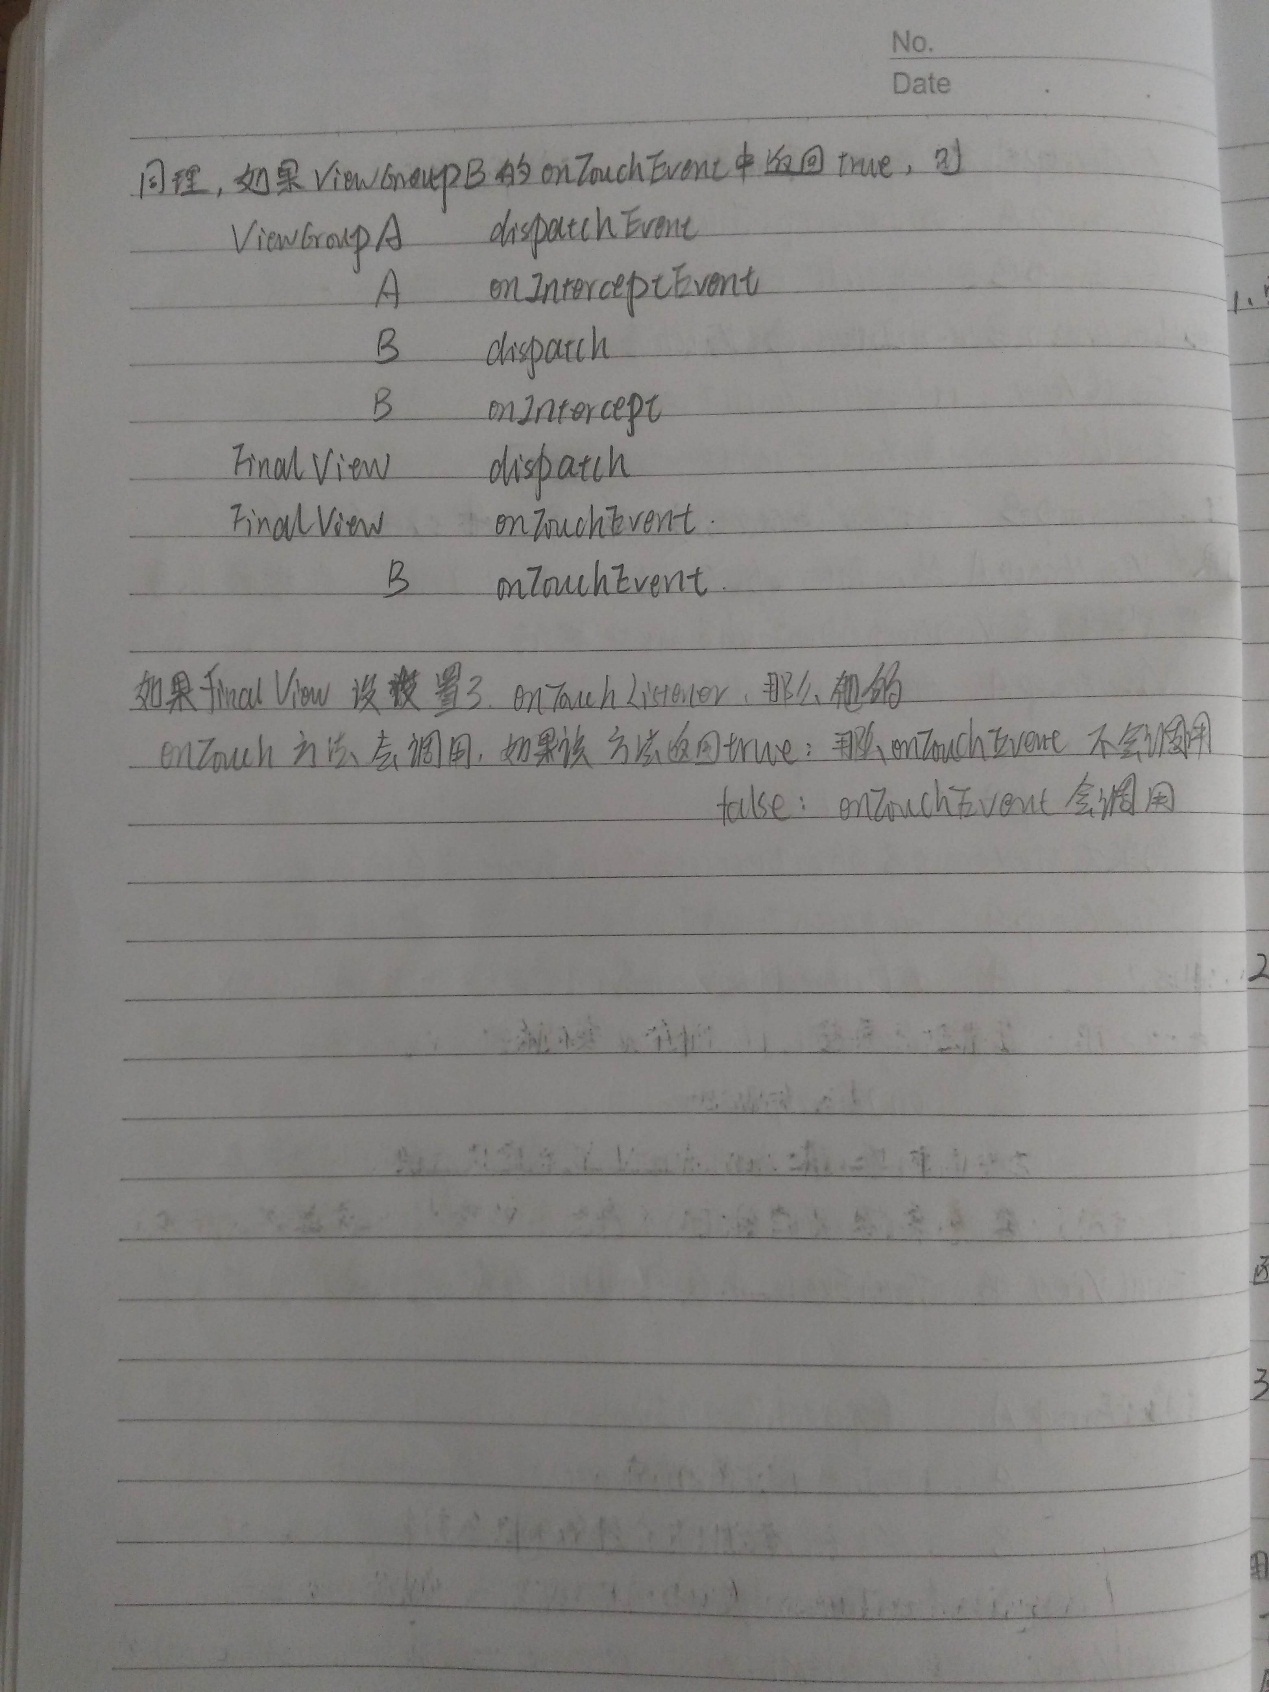 No.
Date
同理，如果ViewGroupB的onTouchEvent中返回true，则
ViewGroupA dispatchEvent
A onInterceptEvent
B dispatch
B onIntercept
FinalView dispatch
FinalView onTouchEvent.
B onTouchEvent.
如果FinalView 设置了 onTouchListener、那么他的
onTouch 方法会调用，如果该方法返回true：那么onTouchEvent 不会调用
false：onTouchEvent 会调用
1、
2
3